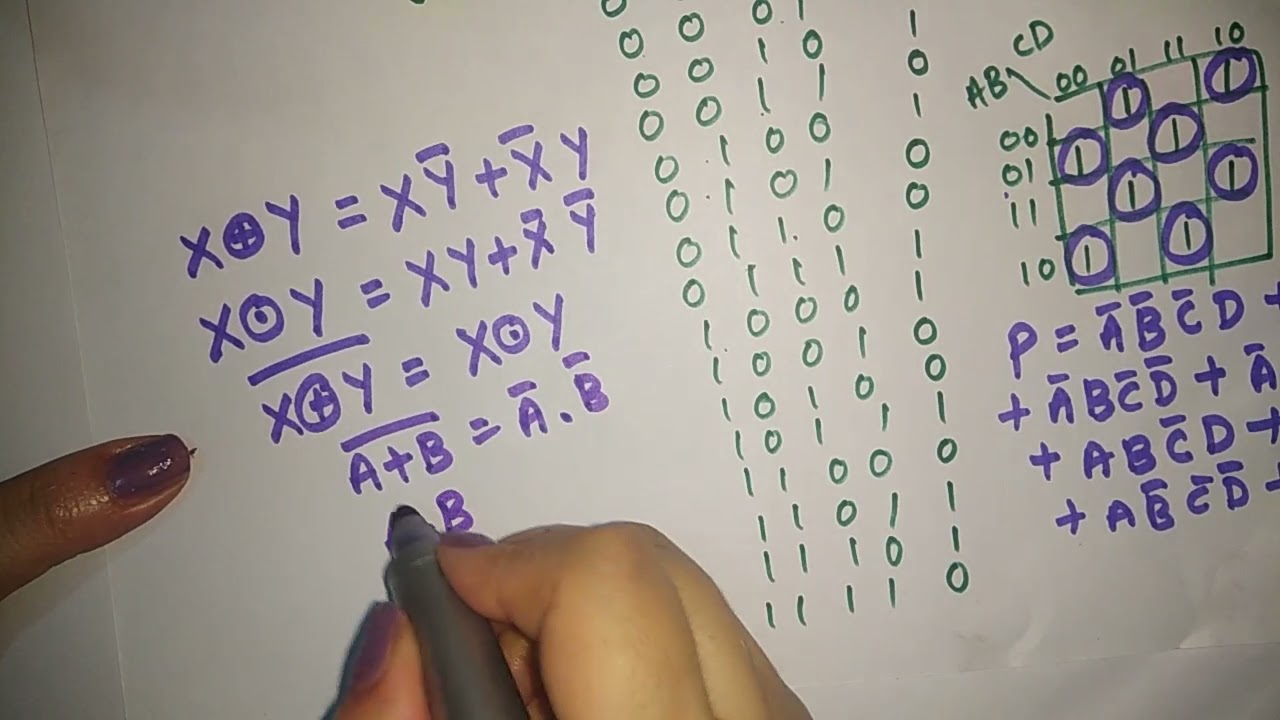 X⊕Y = XY̅ + X̅Y
X⊙Y = XY + X̅ Y̅
X̅⊕̅Y̅ = X⊙Y
A̅+̅B̅ = A̅ . B̅
B
0 0 0 1
0 0 1 0 1
0 0 1 1 0
0 1 0 0 1
0 1 0 1 0
0 1 1 0 0
0 1 1 1 1
1 0 0 0 1
1 0 0 1 0
1 0 1 0 0
1 0 1 1 1
1 1 0 0 0
1 1 0 1 1
1 1 1 0 1
1 1 1 1 0
CD
AB 00 01 11 10
00 1 1
01 1 1
11 1 1
10 1 1
P = A̅ B̅ C̅ D +
+ A̅ B C̅ D̅ + A̅
+ A B C̅ D +
+ A B̅ C̅ D̅ +